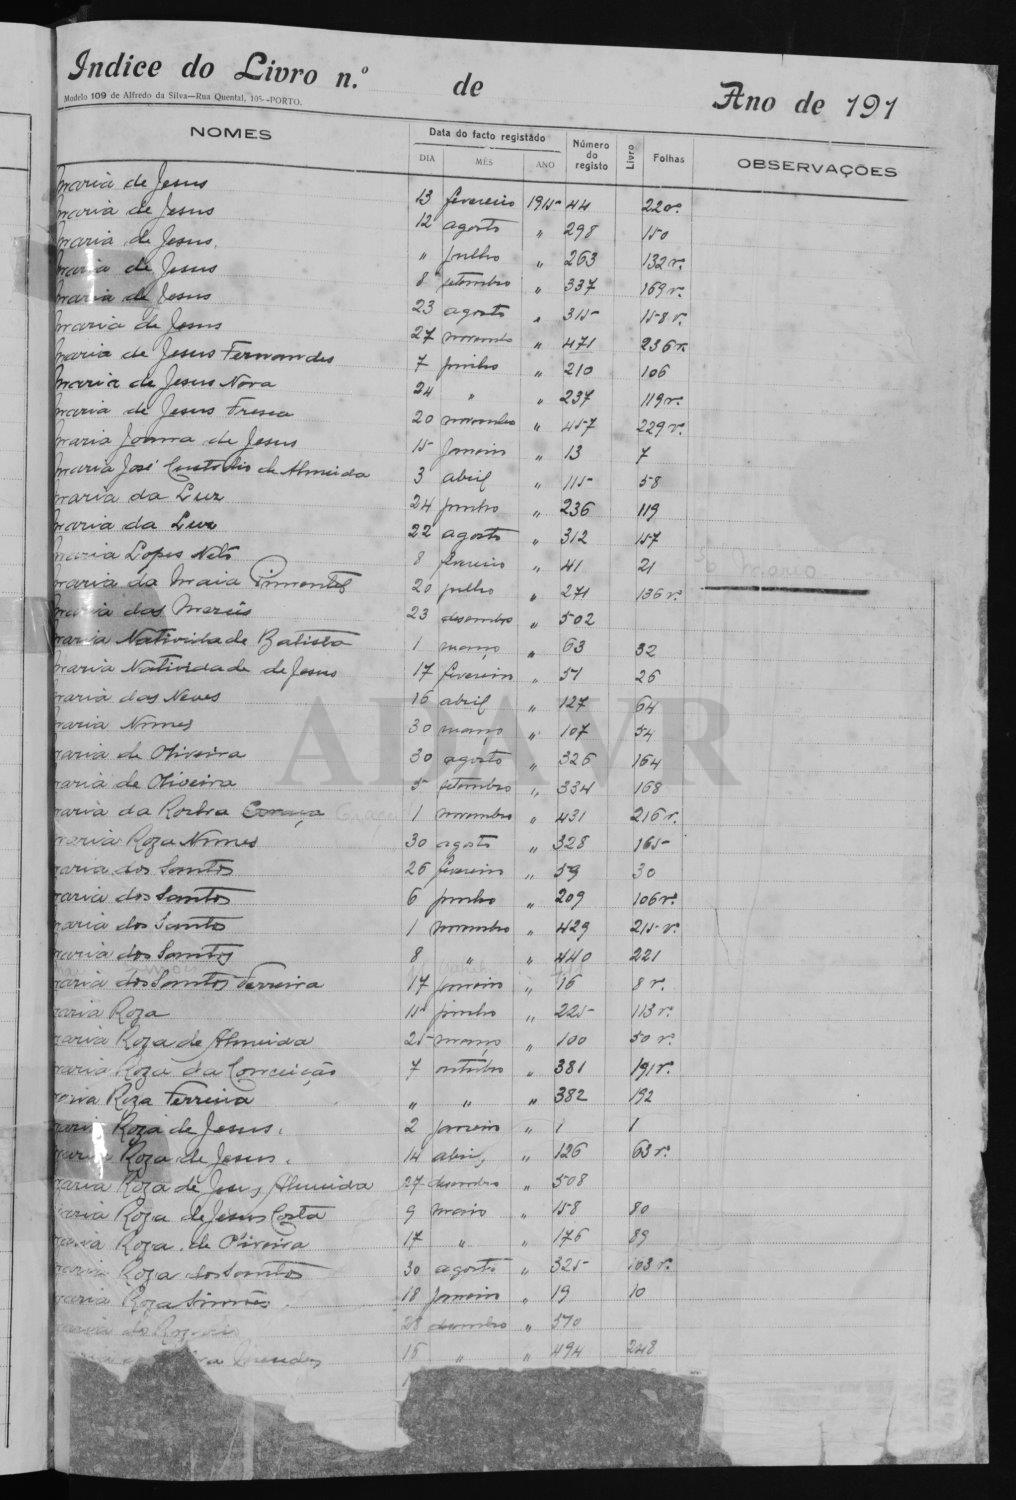 Indice do Livro n.º de Ano de 191
Modelo 109 de Alfredo da Silva—Rua Quental, 105--PORTO.
NOMES Data do facto registado Número do registo Livro Folhas OBSERVAÇÕES
DIA MÊS ANO
Maria de Jesus 13 fevereiro 1915 44 22 v.
Maria de Jesus 12 agosto " 298 150
Maria de Jesus. " julho " 263 132 v.
Maria de Jesus 8 setembro " 337 169 v.
Maria de Jesus 23 agosto " 315 158 v.
Maria de Jesus 27 novembro " 471 236 v.
Maria de Jesus Fernandes 7 junho " 210 106
Maria de Jesus Nova 24 " " 237 119 v.
Maria de Jesus Fresca 20 novembro " 457 229 v.
Maria Joanna de Jesus 15 Janeiro " 13 7
Maria José Custodio de Almeida 3 abril " 115 58
Maria da Luz 24 junho " 236 119
Maria da Luz 22 agosto " 312 157
Maria Lopes Neto 8 fevereiro " 41 21
Maria da Maia Pimentel 20 julho " 271 136 v.
Maria das Mercês 23 dezembro " 502
Maria Natividade Batista 1 março " 63 32
Maria Natividade de Jesus 17 fevereiro " 51 26
Maria das Neves 16 abril " 127 64
Maria Nunes 30 março " 107 54
Maria de Oliveira 30 agosto " 326 164
Maria de Oliveira 5 setembro " 334 168
Maria da Rocha 1 novembro " 431 216 v.
Maria Roza Nunes 30 agosto " 328 165
Maria dos Santos 26 fevereiro " 59 30
Maria dos Santos 6 junho " 209 106 v.
Maria dos Santos 1 novembro " 429 215 v.
Maria dos Santos 8 " " 440 221
Maria dos Santos Ferreira 17 janeiro " 16 8 v.
Maria Roza 15 junho " 225 113 v.
Maria Roza de Almeida 25 março " 100 50 v.
Maria Roza da Conceição 7 outubro " 381 191 v.
Maria Roza Ferreira " " " 382 192
Maria Roza de Jesus. 2 janeiro " 1 1
Maria Roza de Jesus. 14 abril " 126 63 v.
Maria Roza de Jesus Almeida 27 dezembro " 508
Maria Roza de Jesus Costa 9 maio " 158 80
Maria Roza de Oliveira 17 " " 176 89
Maria Roza dos Santos 30 agosto " 325 163 v.
Maria Roza Simões 18 Janeiro " 19 10
Maria do Rozario 28 dezembro " 510
Mendes 16 " " 494 248
ADAVR